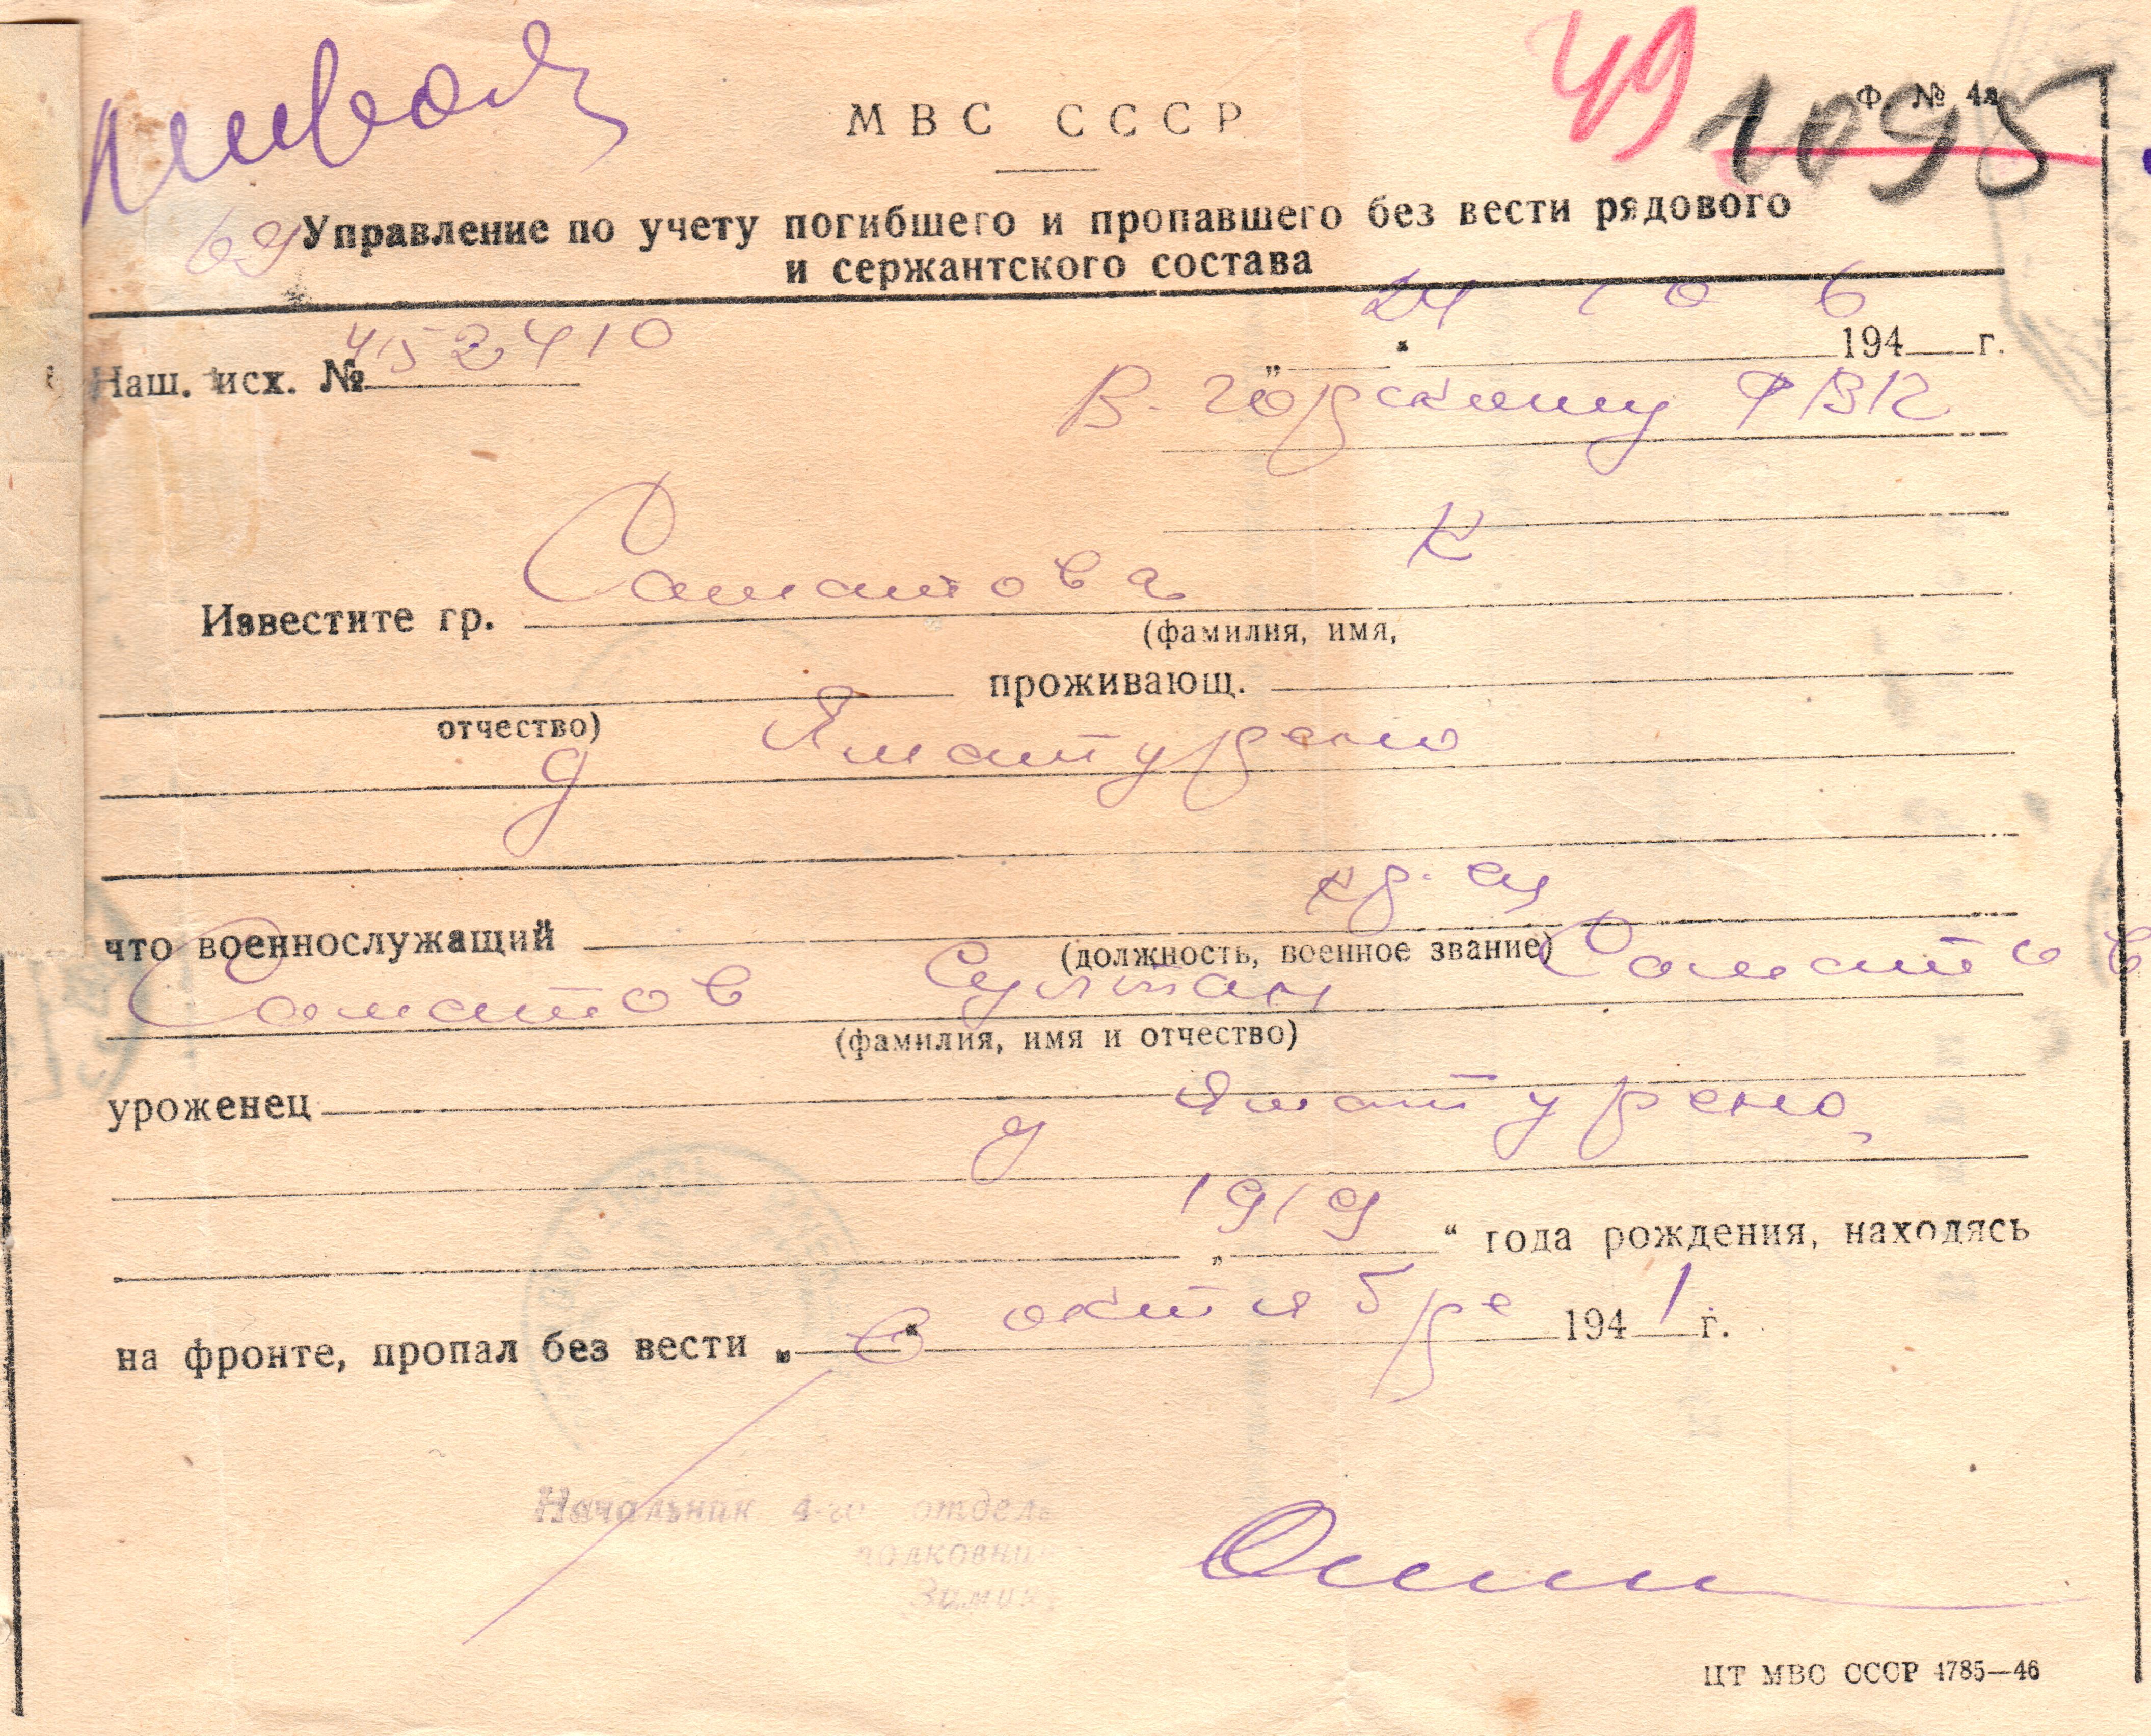 49
1095
Ф. № 4а
МВС СССР
69 Управление по учету погибшего и пропавшего без вести рядового
и сержантского состава
Наш. исх. № 452410
„24" 10 1946 г.
В-горскому РВК
Известите гр. Саматова К
(фамилия, имя,
проживающ.
отчество)
д Яматурено
что военнослужащий кр-ец
(должность, военное звание)
Саматов Султан Саматов
(фамилия, имя и отчество)
уроженец
д Яматурено,
„1919" года рождения, находясь
на фронте, пропал без вести „в" октябре 1941 г.
Начальник 4-го отдела
полковник
Зимин
ЦТ МВС СССР 4785—46